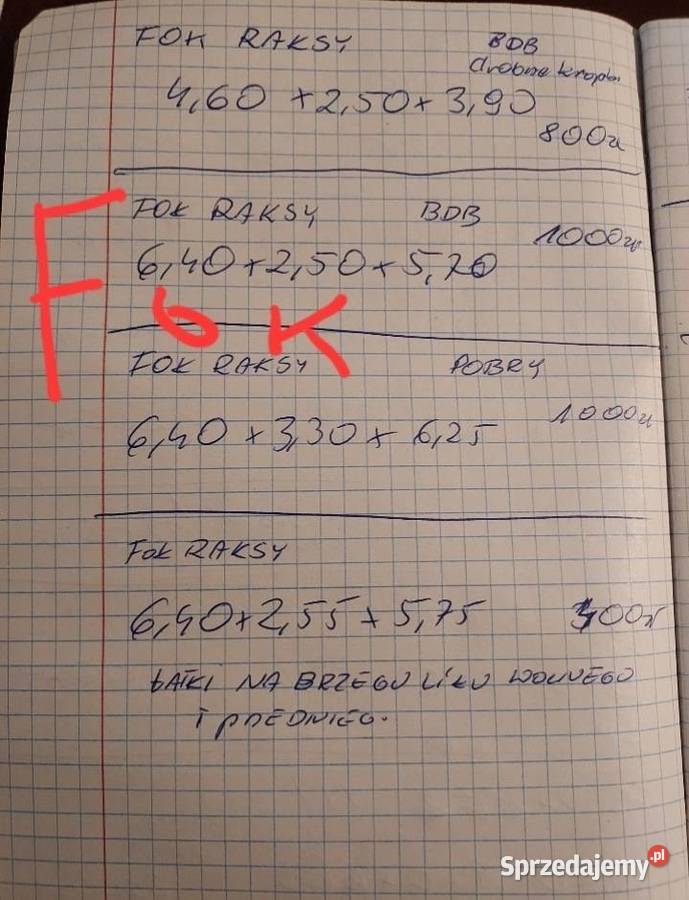 FOK RAKSY BDB
drobne kropki
4,60 x 2,50 x 3,90
800zł
FOK RAKSY BDB
1000zł
6,40 x 2,50 x 5,70
FOK
FOK RAKSY DOBRY
1000zł
6,40 x 3,30 x 6,25
FOK RAKSY
6,40 x 2,55 x 5,75 400zł
ŁATKI NA BRZEGU LIKU WOLNEGO
I PRZEDNIEGO.
Sprzedajemy.pl